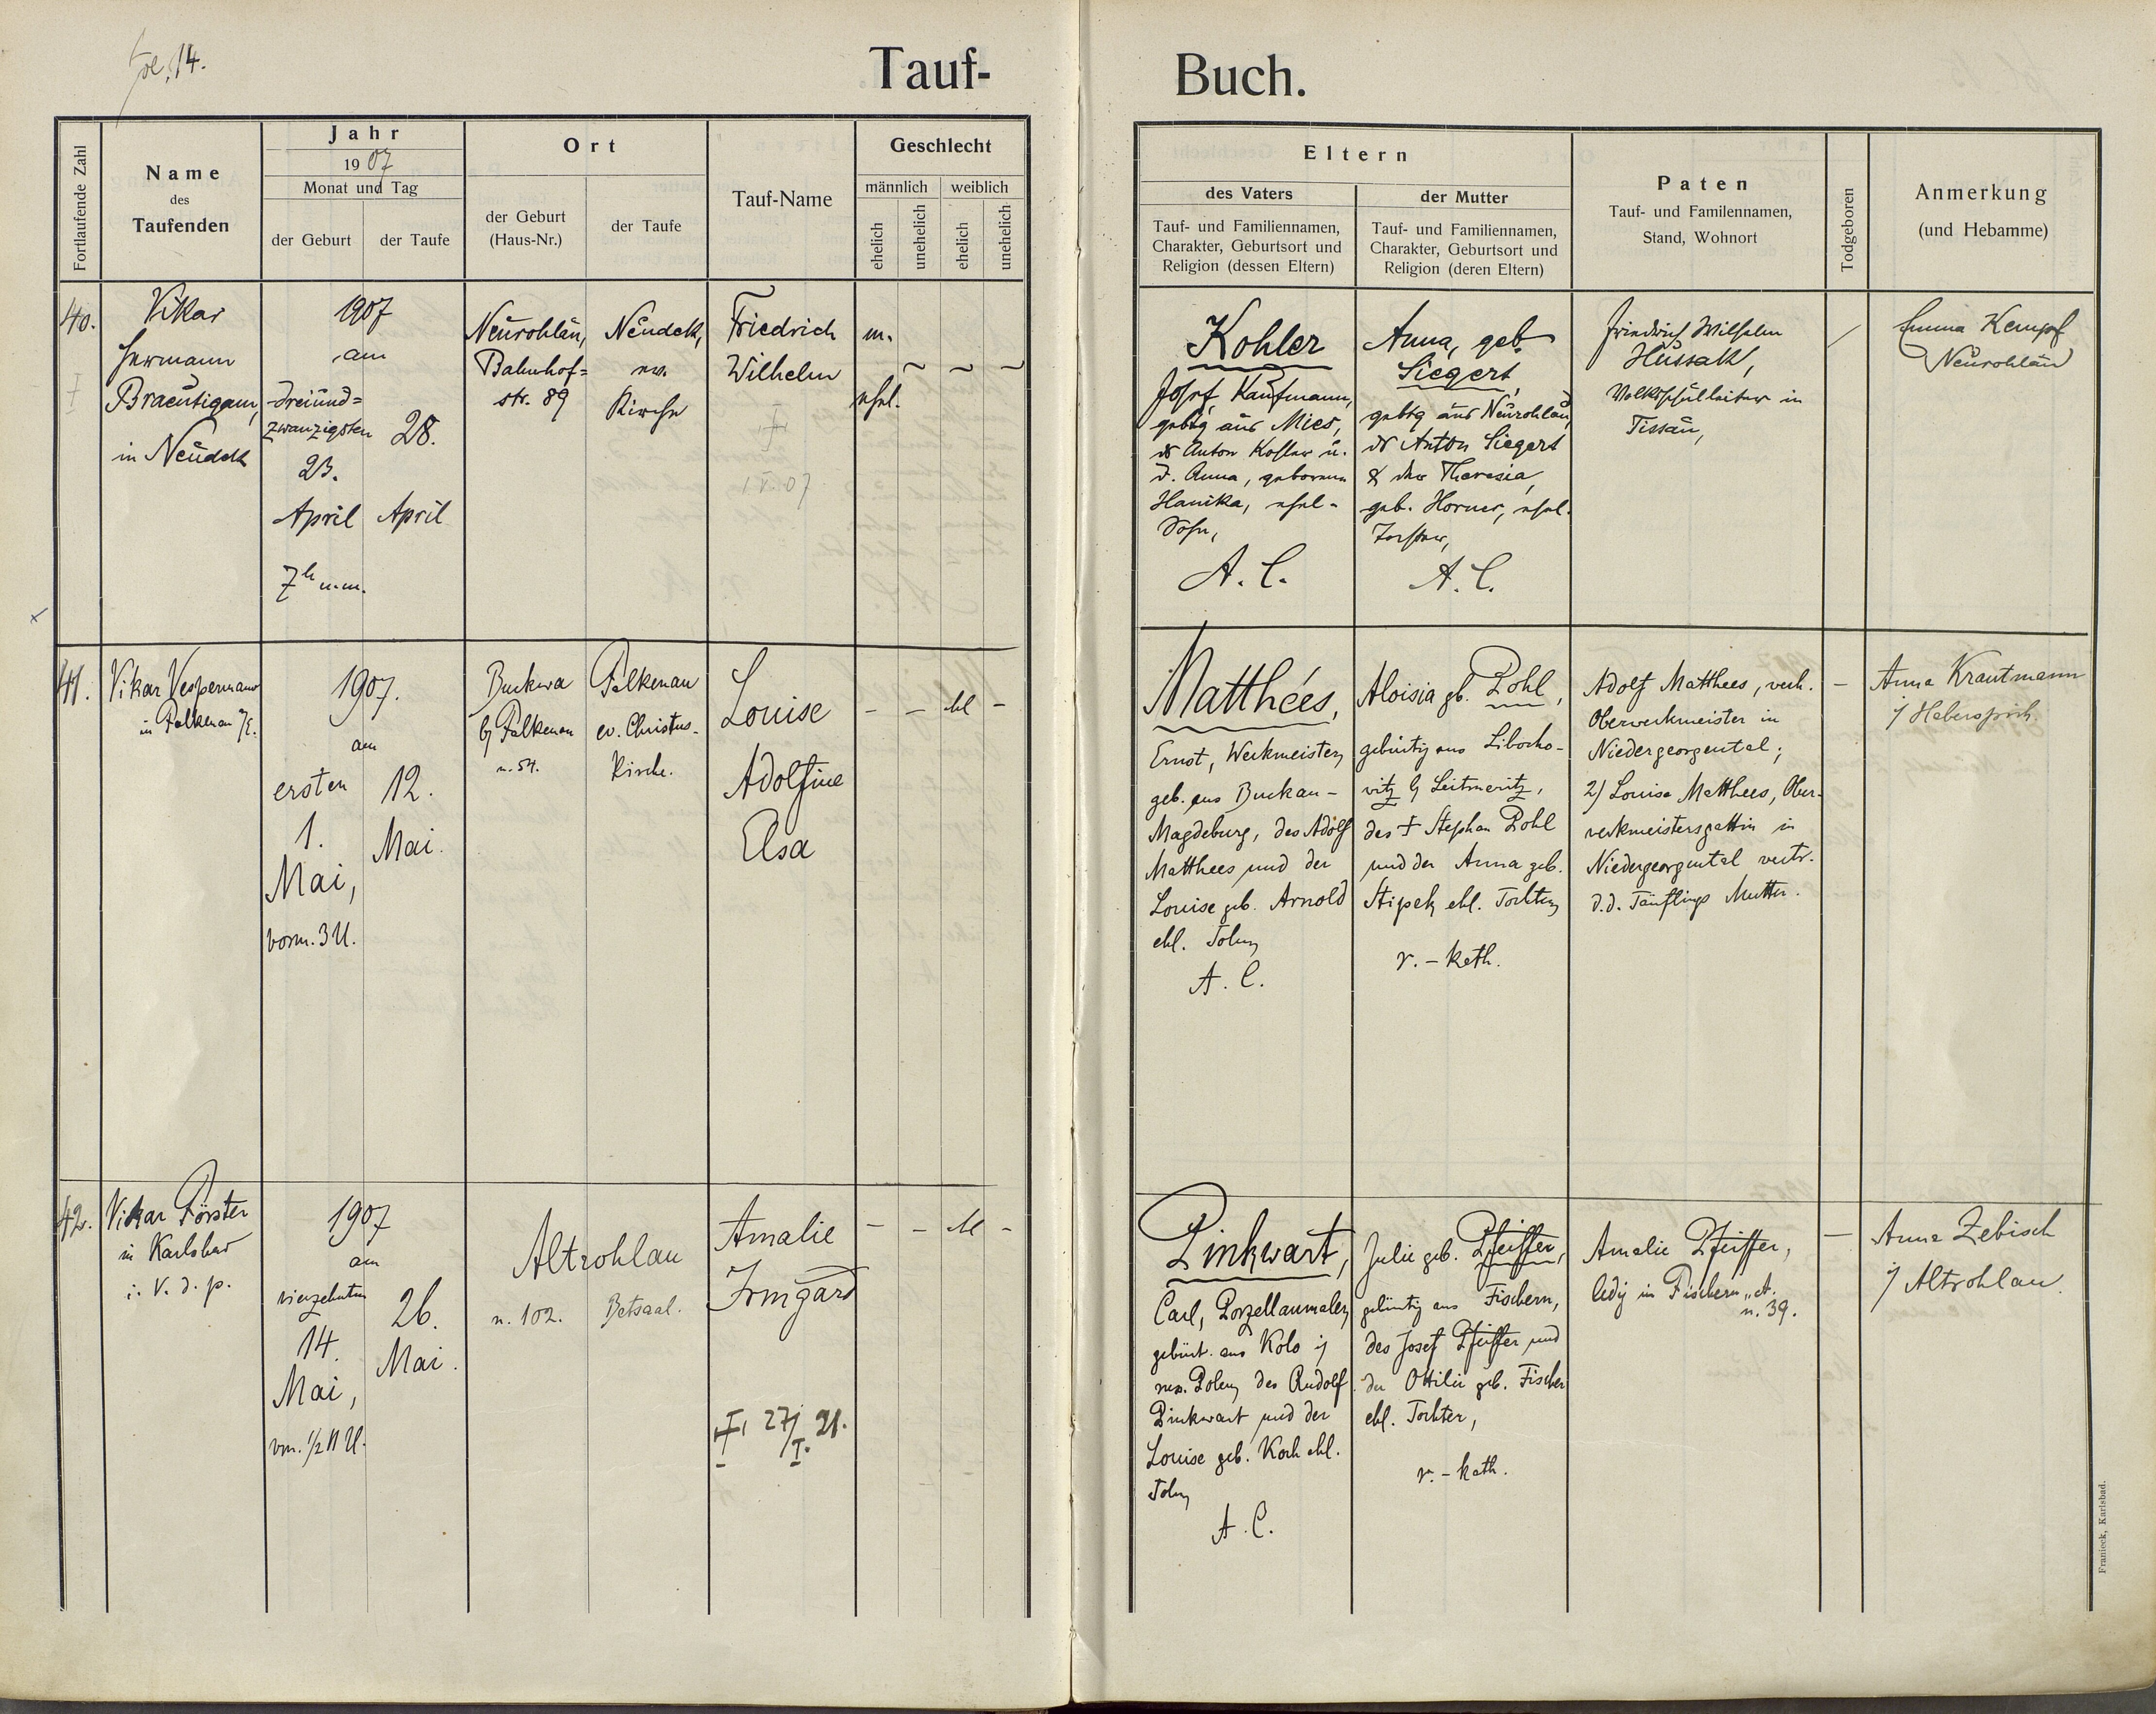 foe. 14.
Tauf-
Buch.
Fortlaufende Zahl
Name
des
Taufenden
Jahr
1907
Monat und Tag
der Geburt
der Taufe
Ort
der Geburt
(Haus-Nr.)
der Taufe
Tauf-Name
Geschlecht
männlich
weiblich
ehelich
unehelich
ehelich
unehelich
Eltern
des Vaters
Tauf- und Familiennamen,
Charakter, Geburtsort und
Religion (dessen Eltern)
der Mutter
Tauf- und Familiennamen,
Charakter, Geburtsort und
Religion (deren Eltern)
Paten
Tauf- und Familennamen,
Stand, Wohnort
Todgeboren
Anmerkung
(und Hebamme)
40.
Vikar
Hermann
Braeutigam,
in Neudek
1907
am
dreiund=
zwanzigsten
23.
April
7h n.m.
28.
April
Neurohlau,
Bahnhof=
str. 89
Neudek,
ev.
Kirche
Friedrich
Wilhelm
1 V. 07
m.
ehel.
Kohler
Josef, Kaufmann,
gebtg aus Mies,
ds Anton Kohler u.
d. Anna, geborenen
Hanika, ehel-
Sohn,
A. C.
Anna, geb
Siegert,
gebtg aus Neurohlau,
ds Anton Siegert
& der Theresia,
geb. Horner, ehel.
Tochter,
A. C.
Friedrich Wilhelm
Hussak,
Volksschulleiter in
Tissau,
Emma Kempf
Neurohlau
41.
Vikar Vespermann
in Falkenau a/E.
1907.
am
ersten
1.
Mai,
vorm. 3 U.
12.
Mai.
Buckwa
b/ Falkenau
n. 54.
Falkenau
ev. Christus-
Kirche.
Louise
Adolfine
Elsa
- - M -
Matthees,
Ernst, Werkmeister,
geb. aus Buckau-
Magdeburg, des Adolf
Matthees und der
Louise geb. Arnold
ehl. Sohn,
A. C.
Aloisia gb. Pohl,
gebürtig aus Libocho-
vitz b/ Leitmeritz,
des † Stephan Pohl
und der Anna geb.
Stipek, ehl. Tochter,
r.-kath.
Adolf Matthees, verh.
Oberwerkmeister in
Niedergeorgental;
2) Louise Matthees, Ober-
werkmeistersgattin in
Niedergeorgental vertr.
d. d. Täuflings Mutter.
-
Anna Krautmann
i/ Haberspirk.
42.
Vikar Förster
in Karlsbad
i. V. d. p.
1907
am
vierzehnten
14.
Mai,
vm. 1/2 11 U.
26.
Mai.
Altrohlau
n. 102.
Betsaal.
Amalie
Irmgard
† 27/I. 21.
- - M -
Pinkwart,
Carl, Porzellanmaler,
gebürt. aus Kolo i/
russ. Polen, des Rudolf
Pinkwart und der
Louise geb. Koch ehl.
Sohn,
A. C.
Julie geb. Pfeiffer,
gebürtig aus Fischern,
des Josef Pfeiffer und
der Ottilie geb. Fischer
ehl. Tochter,
r.-kath.
Amalie Pfeiffer,
ledig in Fischern
n. 39.
-
Anna Zebisch
i/ Altrohlau.
Franieck, Karlsbad.